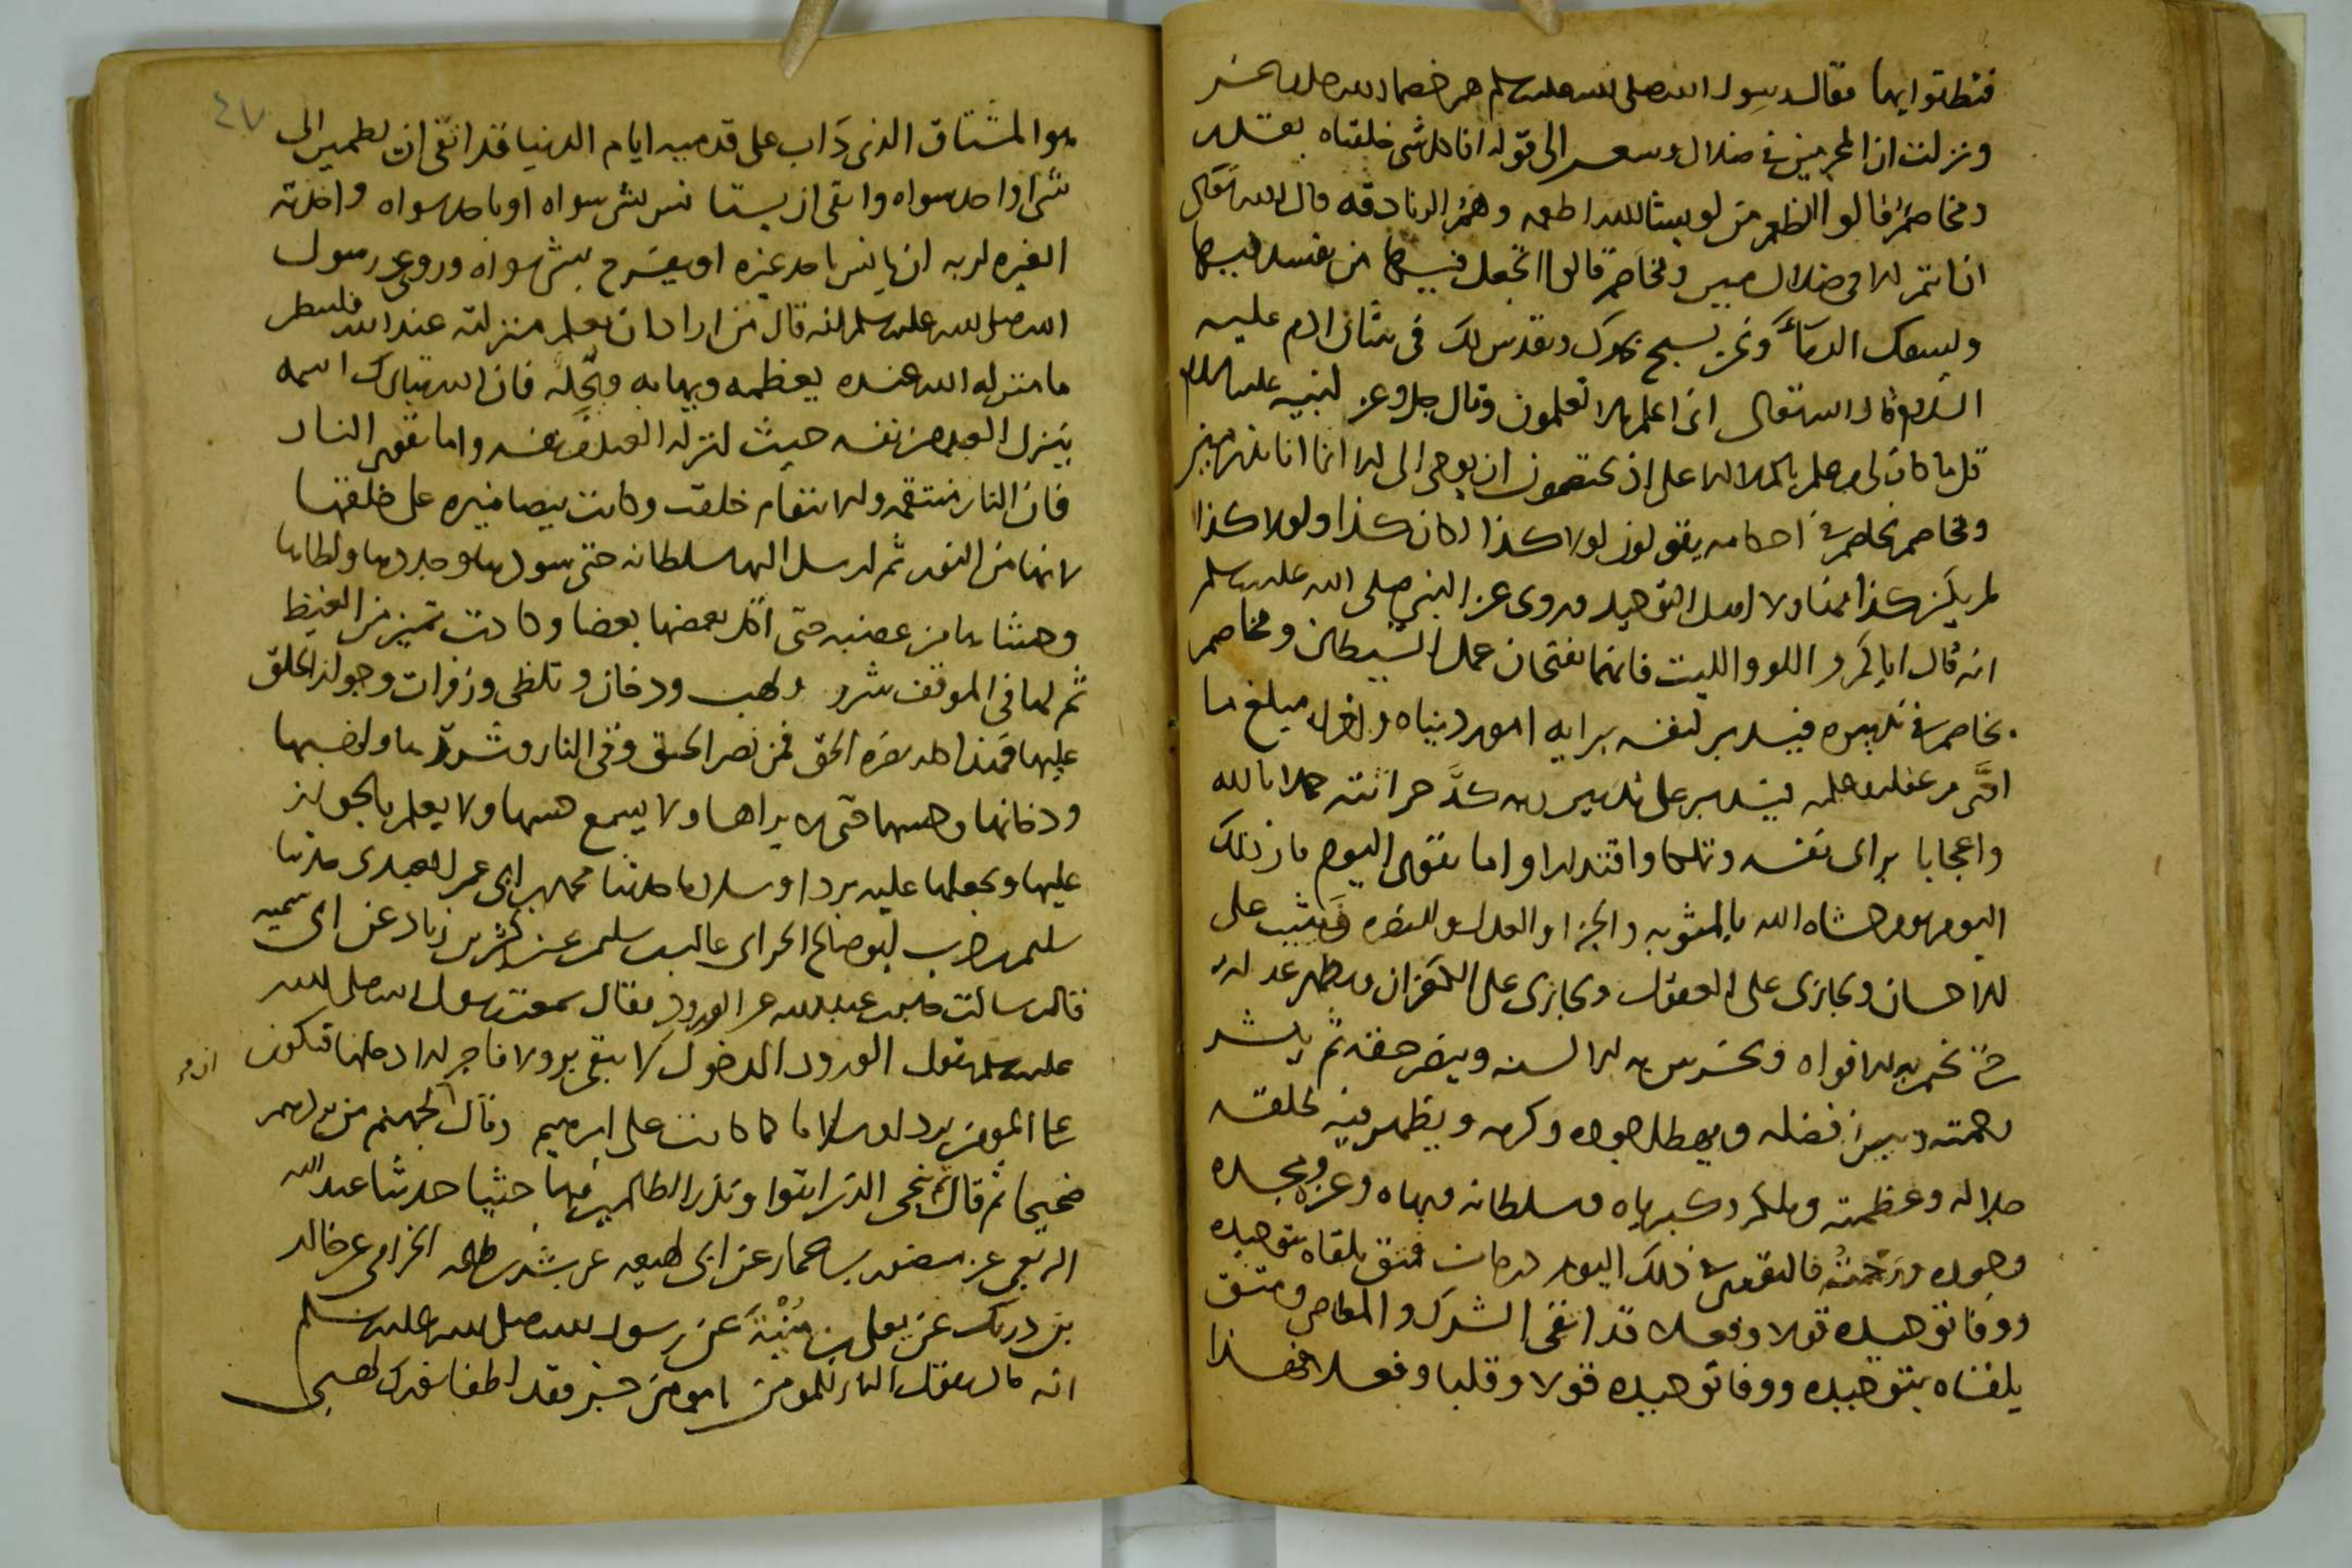 فنطقوا بها فقال رسول الله صلى الله عليه وسلم هم خصماء الله
ونزلت ان المجرمين في ضلال وسعر الى قوله انا كل شي خلقناه بقدر
ومخاصم قالوا انطعم من لو يشا الله اطعمه وهم الزنادقه قال الله تعالى
ان انتم الا في ضلال مبين ومخاصم قالوا اتجعل فيها من يفسد فيها
ويسفك الدماء ونحن نسبح بحمدك ونقدس لك في شان ادم عليه
السلام قال الله تعالى اني اعلم ما لا تعلمون وقال جل وعز لنبيه عليه السلام
قل ما كان لي من علم بالملا الاعلى اذ يختصمون ان يوحى الي الا انما انا نذير مبين
ومخاصم يخاصم في احكامه يقولون لولا كذا لكان كذا ولولا كذا
لم يكن كذا ولا اهل التوحيد وروى عن النبي صلى الله عليه وسلم
انه قال اياكم واللو والليت فانهما يفتحان عمل الشيطان ومخاصم
يخاصم في تدبيره فيدبر لنفسه برايه امور دنياه واخراه مبلغ ما
اتى من عقله وعلمه فيدبر على تدبير ربه حراثته جهلا بالله
واعجابا براى نفسه واقتدارا واما تقوى اليوم فان ذلك
اليوم يوم انشاه الله بالمثوبه والجزا والعدل والنصره فيثيب على
الاحسان ويجازى على العقوق ويجازى على الكفران ويظهر عدله
حتى تخمد به الافواه وتخرس به الالسنه وينصر حقه ثم ينشر
رحمته ويبرز فضله ويهطل جوده وكرمه ويظهر فيه لخلقه
جلاله وعظمته وملكه وكبرياه وسلطانه وبهاه وعزه ومجده
وجوده ورحمته فالتقوى في ذلك اليوم درجات فمتق يلقاه بتوحيده
ووفا توحيده قولا وفعلا قد اتقى الشرك والمعاصي ومتق
يلقاه بتوحيده ووفا توحيده قولا وقلبا وفعلا فهذا
٤٧
هو المشتاق الذي داب على قدميه ايام الدنيا فقد اتقى ان يطمئن الى
شي او احد سواه واتقى ان يستانس بشي سواه او باحد سواه واخذته
الغيره لربه ان يانس باحد غيره او يفرح بشي سواه وروي عن رسول
الله صلى الله عليه وسلم انه قال من اراد ان يعلم منزلته عند الله فلينظر
ما منزله الله عنده يعظمه ويهابه ويجله فان الله تبارك اسمه
ينزل العبد من نفسه حيث انزله العبد من نفسه واما تقوى النار
فان النار منتقمه وللانتقام خلقت وكانت بيضا منيره على خلقتها
لانها من النور ثم ارسل اليها سلطانه حتى سودها
وحشاها من غضبه حتى اكل بعضها بعضا وكادت تميز من الغيظ
ثم لها في الموقف شرر ولهب ودخان وتلظى وزفرات وجواز الخلق
عليها فمن نصر الحق وقي النار وشررها
ودخانها وحسها حتى لا يراها ولا يسمع حسها ولا يعلم بالجواز
عليها ويجعلها عليه بردا وسلاما حدثنا محمد بن ابي عمر العبدي حدثنا
سليمن بن حرب ابو صالح الحراني غالب بن سليمن عن كثير بن زياد عن ابي سميه
قال سالت جابر بن عبد الله عن الورود فقال سمعت رسول الله صلى الله
عليه وسلم يقول الورود الدخول لا يبقى بر ولا فاجر الا دخلها فتكون
على المومن بردا وسلاما كما كانت على ابرهيم وقال لجهنم من بردهم
ضجيجا ثم قال ثم ننجي الذين اتقوا ونذر الظالمين فيها جثيا حدثنا عبد الله
الربعي عن منصور بن عمار عن ابي لهيعه عن بشير بن طلحه الخزامي عن خالد
بن دريك عن يعلى بن منية عن رسول الله صلى الله عليه وسلم
انه قال تقول النار للمومن يا مومن جز فقد اطفا نورك لهبي